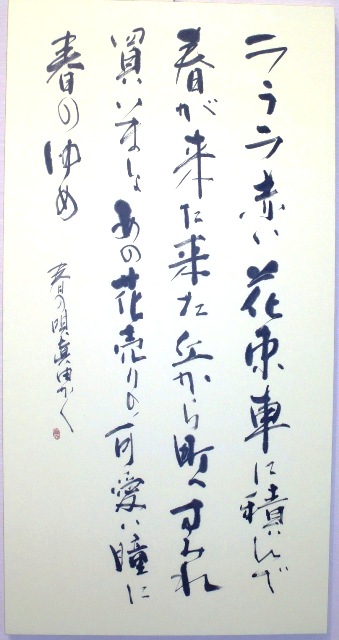 ラララ赤い花束車に積んで
春が来た来た丘から町へすみれ
買いましょあの花売りの可愛い瞳に
春のゆめ
春の唄真由かく